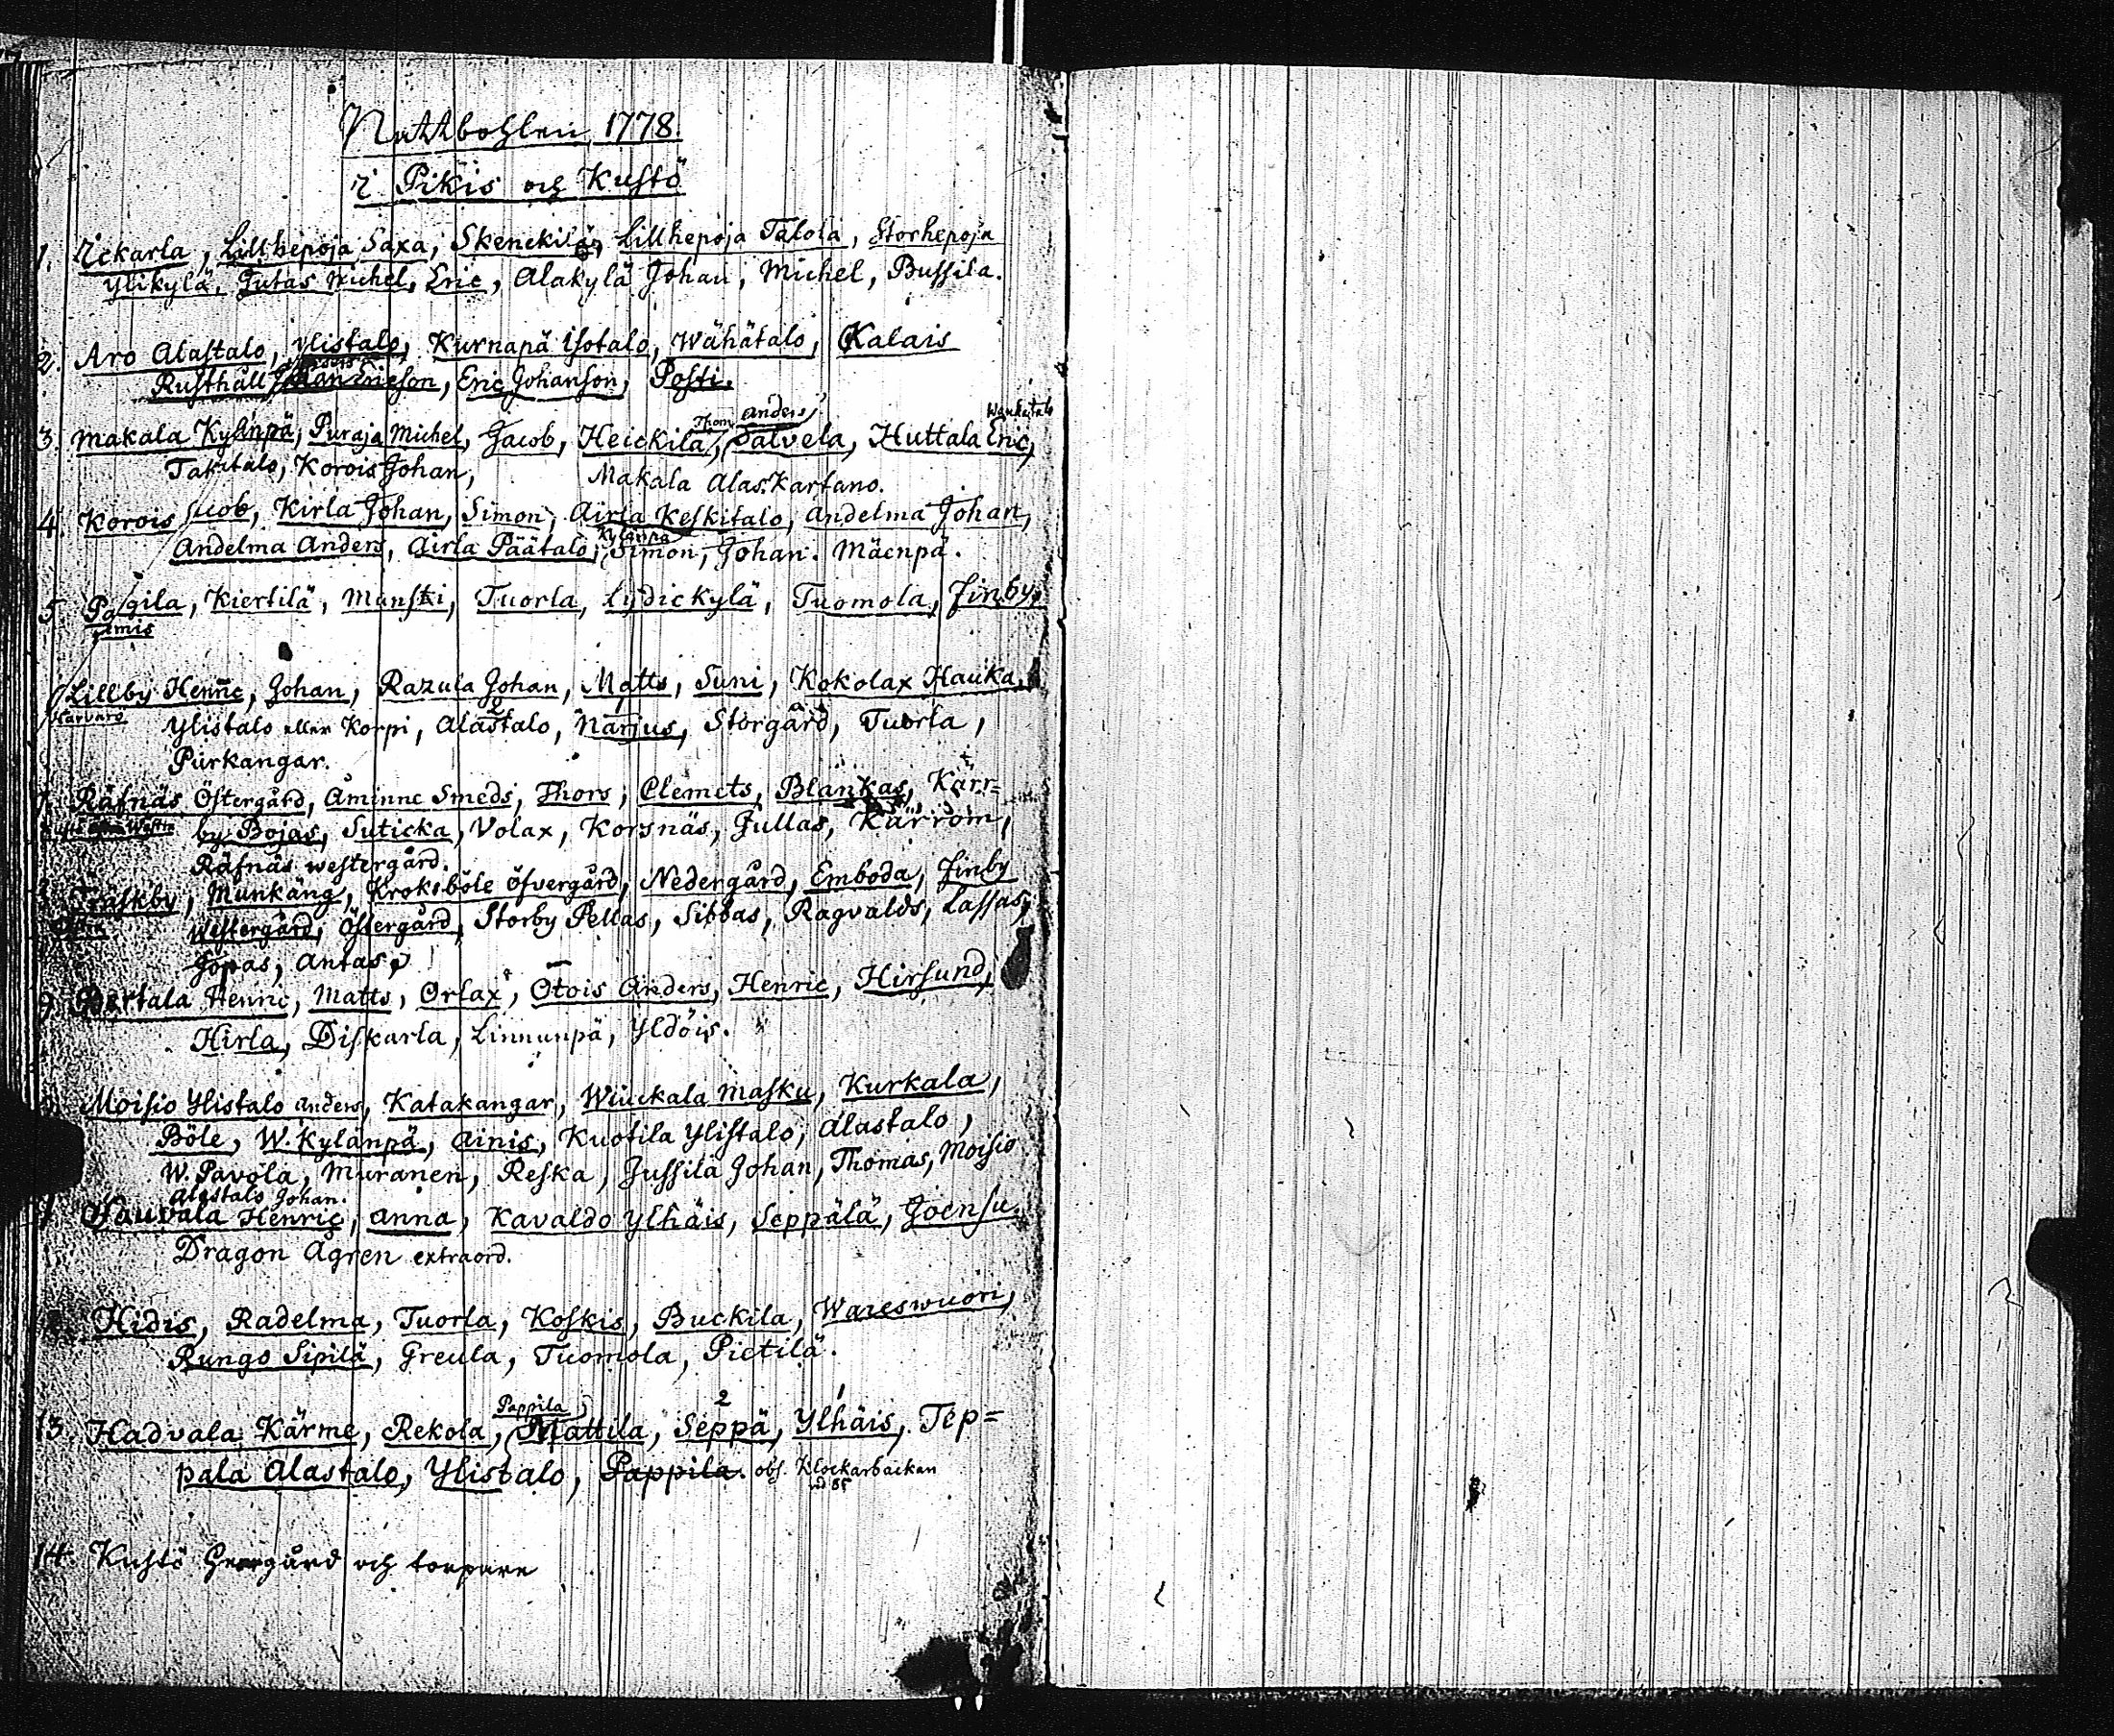 Nattbohlen 1778.
i Pikis och Kustö
1. Ickarla, Lillhepoja Saxa, Skenckilä, Lillhepoja Talola, Storhepoja
Ylikylä, Jutas Michel, Eric, Alakylä Johan, Michel, Bussila.
2. Aro Alastalo, Ylistalo, Kurnapä Isotalo, Wähätalo, Kalais
Rusthåll Ericson, Eric Johanson, Posti.
Thom. Anders,
3. Makala Kylänpä, Puraja Michel, Jacob, Heickilä, Salvela, Huttala Eric,
Takatalo, Korois Johan, Makala Alas-Kartano.
4. Korois Jacob, Kirla Johan, Simon, Airla Keskitalo, Andelma Johan,
Kylänpä
Andelma Anders, Airla Päätalo, Simon, Johan. Mäenpä.
5 Kiertilä, Munski, Tuorla, Lydickylä, Tuomola, Finby,
Lillby Henric, Johan, Razula Johan, Matts, Suni, Kokolax Hauka,
Harvaro 2 1
Ylistalo eller Korpi, Alastalo, Narjus, Storgård, Tuorla,
Purkangar.
7. Räfnäs Östergård, Åminne Smeds, Thors, Clemets, Blankas, Kärr=
by Bojas, Suticka, Volax, Korsnäs, Jullas, Kärrom,
Räfnäs westergård.
Träskby, Munkäng, Kroksböle Öfvergård, Nedergård, Emboda, Finby
Westergård, Östergård, Storby Pellas, Sibbas, Ragvalds, Lassas,
Jopas, Antas,
9 Bertala Henric, Matts, Orlax, Otois Anders, Henric, Hirsund,
Hirla, Diskarla, Linnunpä, Yldöis.
Moisio Ylistalo Anders, Katakangar, Wiuckala Masku, Kurkala,
Böle, W. Kylänpä, Ainis, Kuotila Ylistalo, Alastalo,
W. Pavola, Muranen, Reska, Jussila Johan, Thomas, Moisio
Alastalo Johan.
Sauvala Henric, Anna, Kavaldo Ylhäis, Seppälä, Joensu.
Dragon Ågren extraord.
Hidis, Radelma, Tuorla, Koskis, Buckila, Wareswuori,
Rungo Sipilä, Greula, Tuomola, Pietilä.
Pappila, 2 1
13. Hadvala Kärme, Rekola, Mattila, Seppä, Ylhäis, Tep=
pala Alastalo, Ylistalo, Pappila. obs. Klockarbacken
14. Kustö Herrgård och torpare